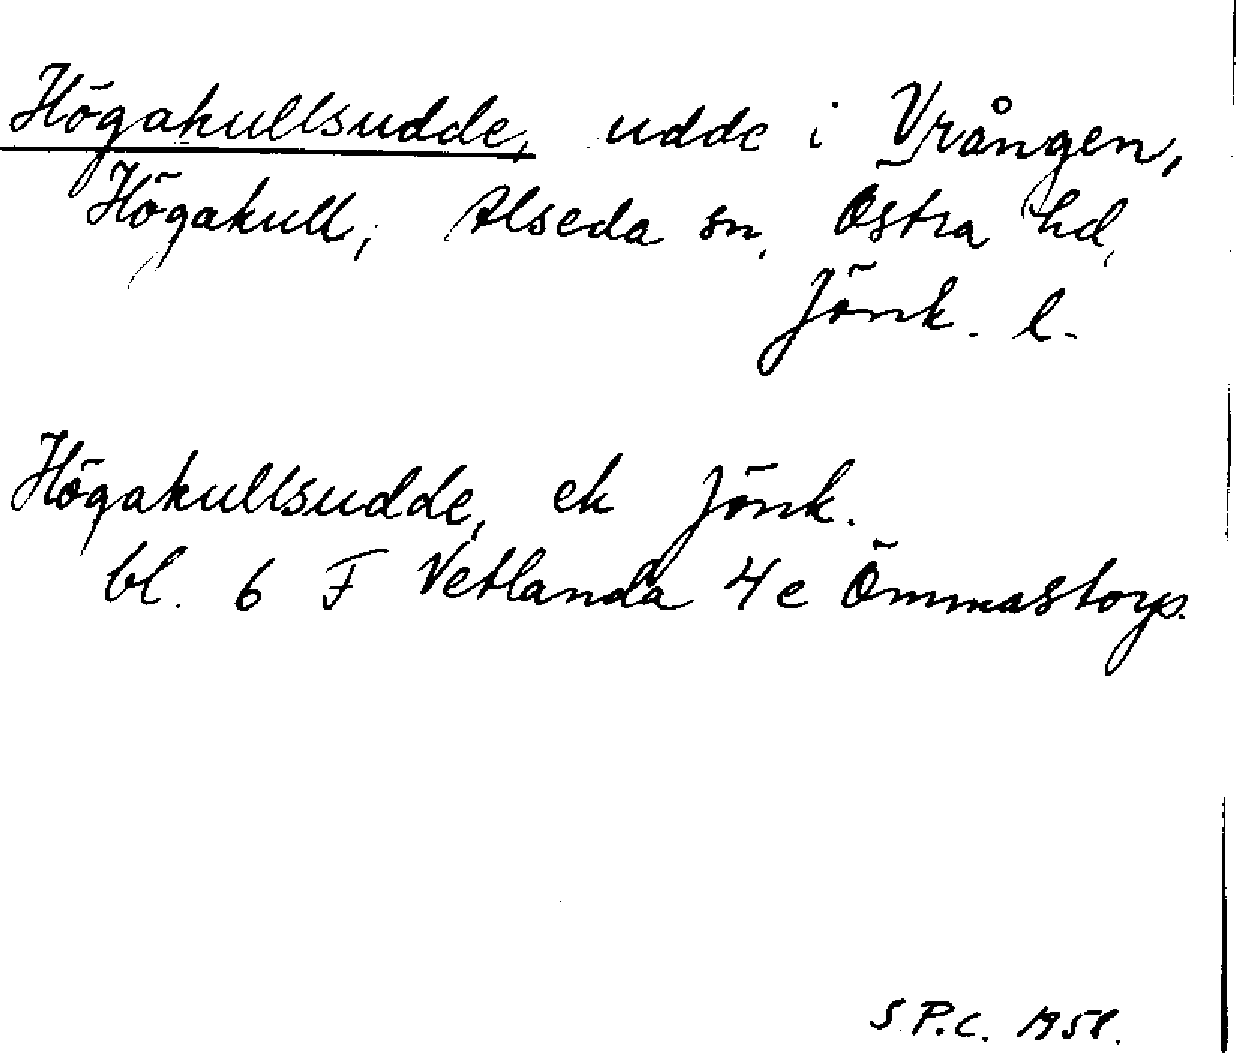 Högakullsudde, udde i Vrången,
Högakull, Alseda sn, Östra hd,
Jönk. l.
Högakullsudde, ek Jönk.
bl. 6 F Vetlanda 4e Ömmastorp.
S P.C. 1958.